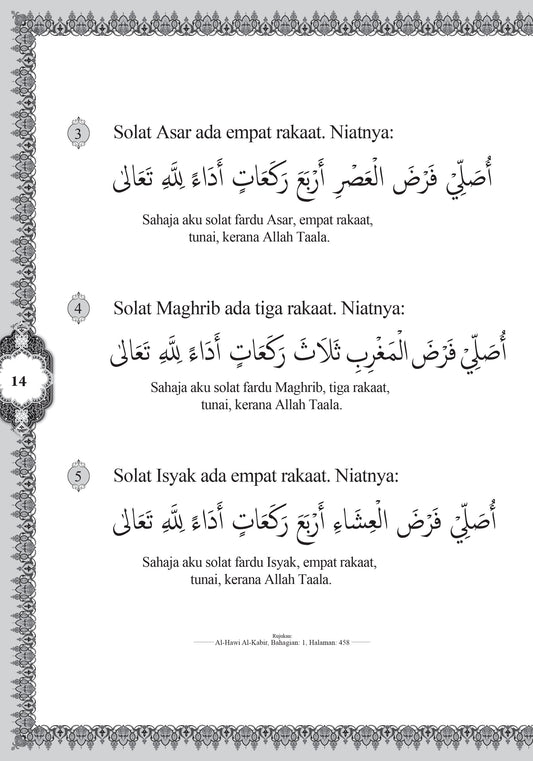 3
Solat Asar ada empat rakaat. Niatnya:
أُصَلِّيْ فَرْضَ الْعَصْرِ أَرْبَعَ رَكَعَاتٍ أَدَاءً لِلَّهِ تَعَالٰى
Sahaja aku solat fardu Asar, empat rakaat,
tunai, kerana Allah Taala.
4
Solat Maghrib ada tiga rakaat. Niatnya:
أُصَلِّيْ فَرْضَ الْمَغْرِبِ ثَلَاثَ رَكَعَاتٍ أَدَاءً لِلَّهِ تَعَالٰى
14
Sahaja aku solat fardu Maghrib, tiga rakaat,
tunai, kerana Allah Taala.
5
Solat Isyak ada empat rakaat. Niatnya:
أُصَلِّيْ فَرْضَ الْعِشَاءِ أَرْبَعَ رَكَعَاتٍ أَدَاءً لِلَّهِ تَعَالٰى
Sahaja aku solat fardu Isyak, empat rakaat,
tunai, kerana Allah Taala.
Rujukan:
Al-Hawi Al-Kabir, Bahagian: 1, Halaman: 458